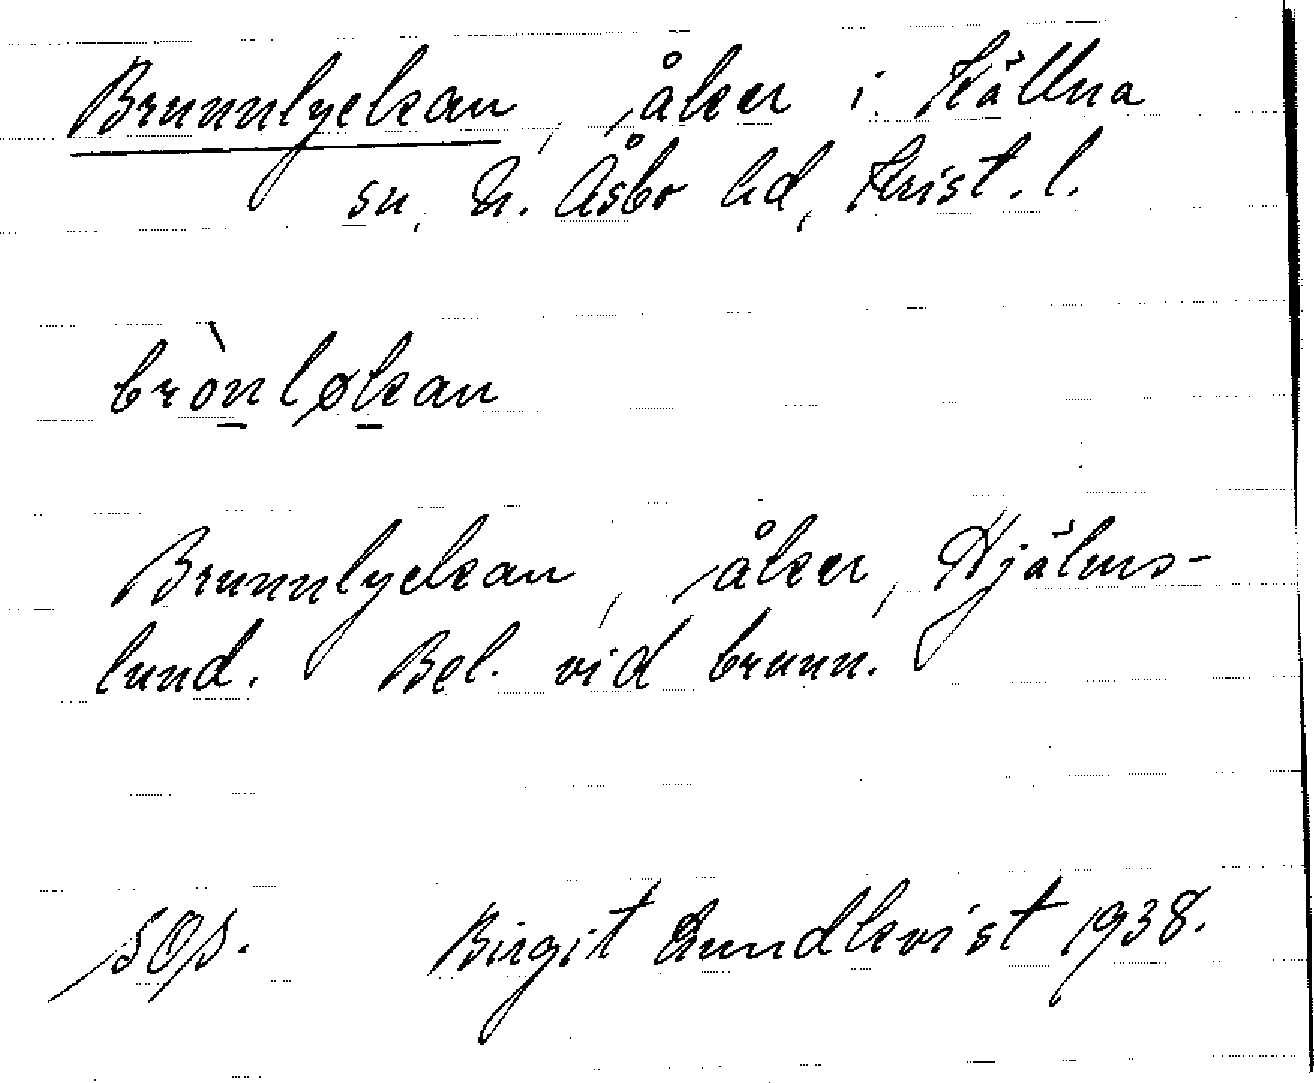 Brunnlyckan, åker i Källna
sn, N. Åsbo hd, Krist. l.
brònløkan
Brunnlyckan, åker, Hjälms-
lund. Bel. vid brunn.
SOS. Birgit Lundkvist 1938.